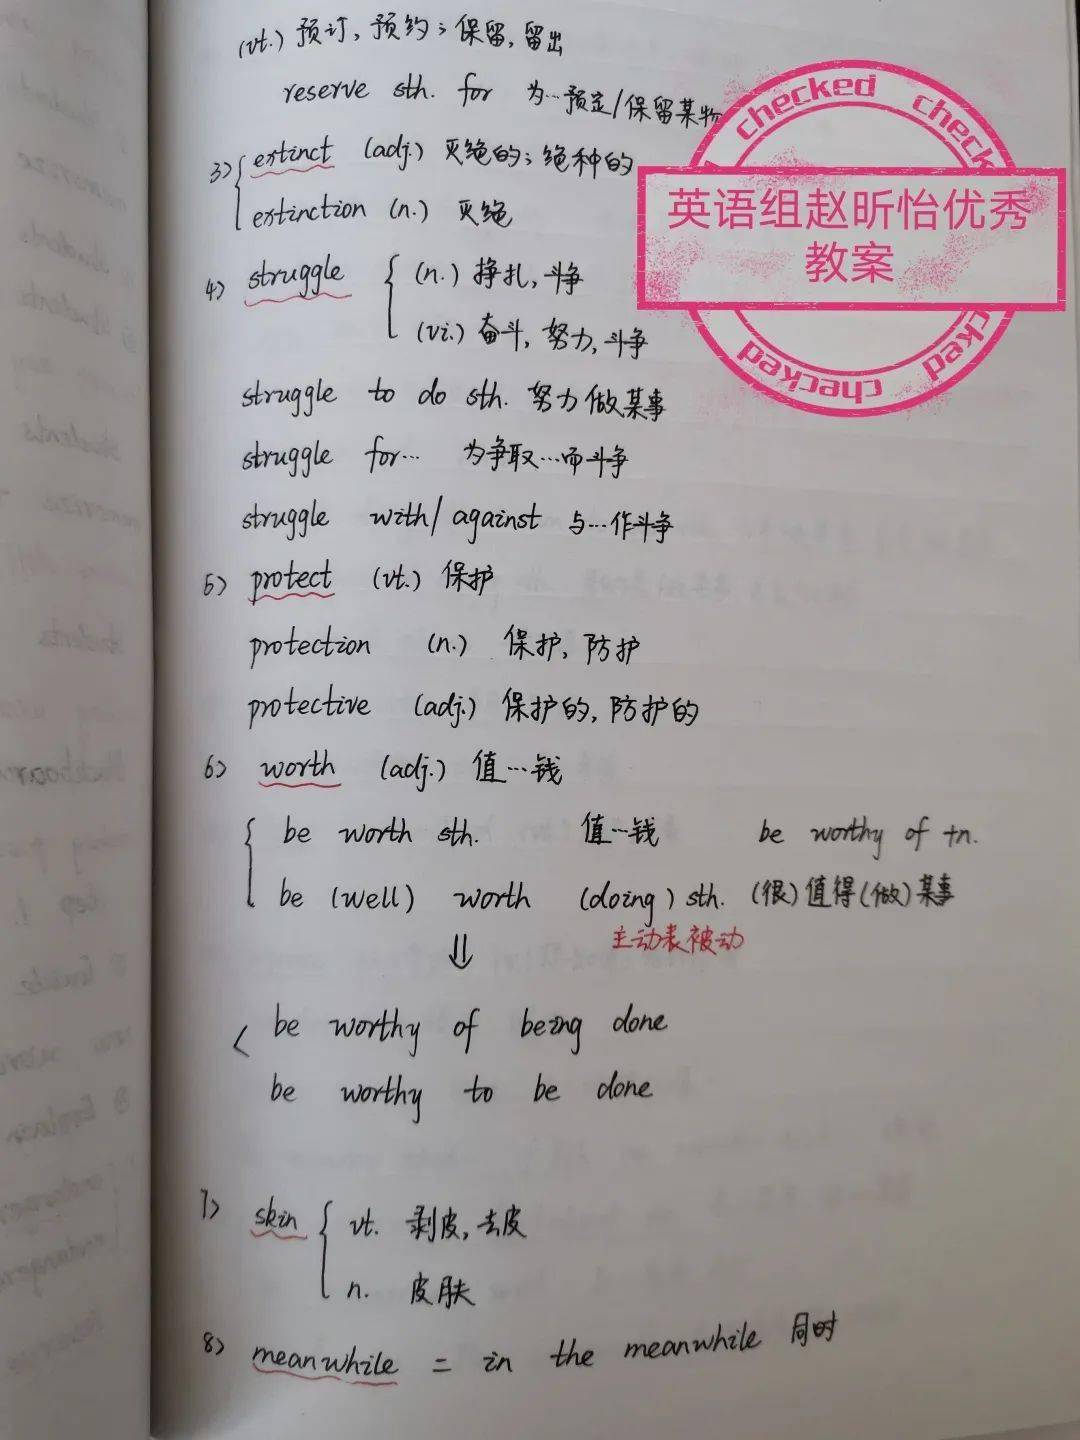 (vt.) 预订, 预约; 保留, 留出
reserve sth. for 为…预定/保留某物
3) extinct (adj.) 灭绝的; 绝种的
extinction (n.) 灭绝
4) struggle (n.) 挣扎, 斗争
(vi.) 奋斗, 努力, 斗争
struggle to do sth. 努力做某事
struggle for… 为争取…而斗争
struggle with/against 与…作斗争
5) protect (vt.) 保护
protection (n.) 保护, 防护
protective (adj.) 保护的, 防护的
6) worth (adj.) 值…钱
be worth sth. 值…钱 be worthy of +n.
be (well) worth (doing) sth. (很)值得(做)某事
主动表被动
⇓
be worthy of being done
be worthy to be done
7) skin vt. 剥皮, 去皮
n. 皮肤
8) meanwhile = in the meanwhile 同时
checked checked
英语组赵昕怡优秀
教案
checked checked